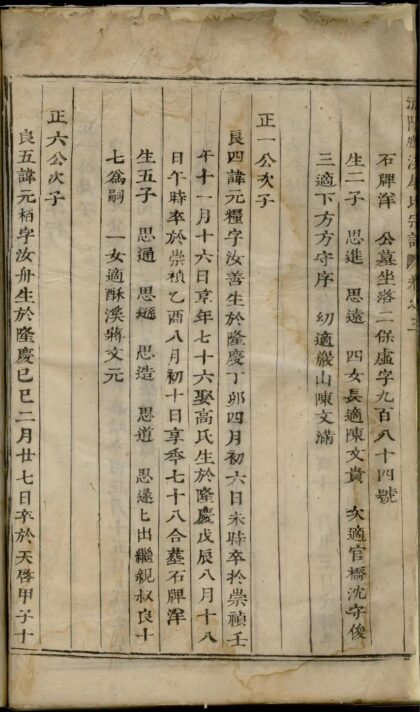 氏宗譜
石牌渾　公墓坐落二保虛字九百八十四號
生二子　思進　思遠　四女長適陳文貴　次適官橋沈守俊
三適下方方守序　幼適嚴山陳文滿
正一公次子
良四諱元糧字汝善生於隆慶丁卯四月初六日未時卒於崇禎壬
午十一月十六日享年七十六娶高氏生於隆慶戊辰八月十八
日午時卒於崇禎乙酉八月初十日享年七十八合墓石牌渾
生五子　思通　思遜　思造　思道　思　出繼親叔良十
七為嗣　一女適酥溪蔣文元
正六公次子
良五諱元栢字汝舟生於隆慶己巳二月廿七日卒於天啓甲子十